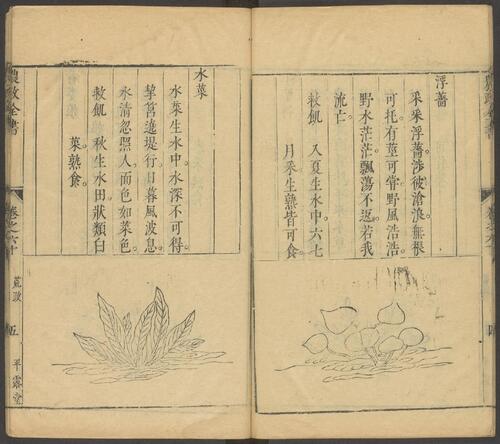 浮薔
采采浮薔涉彼滄浪無根
可托有莖可嘗野風浩浩
野水茫茫飄蕩不返若我
流亡
救飢　入夏生水中六七
月采生熟皆可食
水菜
水菜生水中水深不可得
挈筥遶堤行日暮風波息
水清忽照人面色如菜色
救飢　秋生水田狀類白
菜熟食
農政全書
卷之六十
荒政
五
平露堂